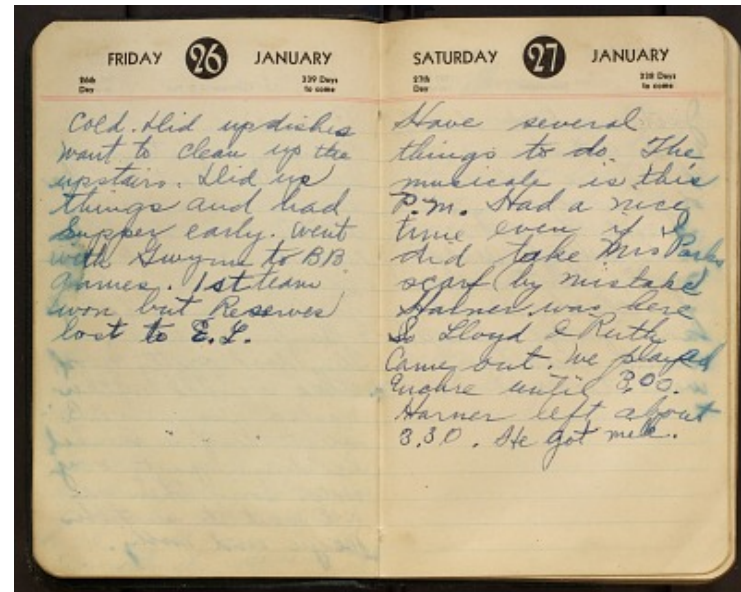 FRIDAY 26 JANUARY
26th Day 339 Days to come
Cold. Did up dishes
want to clean up the
upstairs. Did up
things and had
Supper early. Went
with Gwynn to BB
games. 1st team
won but Reserves
lost to E.L.
SATURDAY 27 JANUARY
27th Day 338 Days to come
Have several
things to do. The
musicale is this
P.M. Had a nice
time even if I
did take Mrs Parks
scarf by mistake
Harner was here
So Lloyd & Ruth
Came out. We played
Euchre until 3.00.
Harner left about
3.30. He got